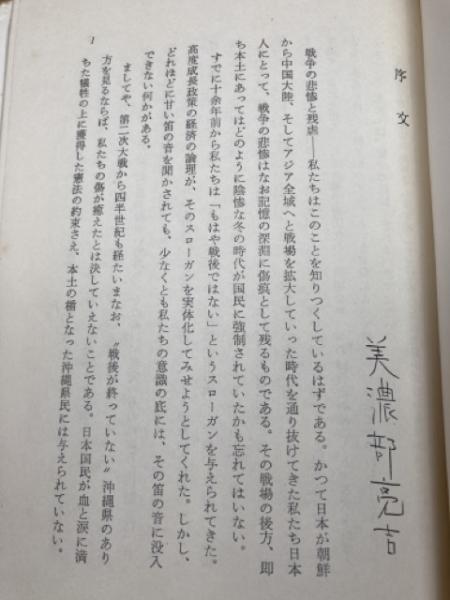 序文
美濃部亮吉
戦争の悲惨と残虐——私たちはこのことを知りつくしているはずである。かつて日本が朝鮮
から中国大陸、そしてアジア全域へと戦場を拡大していった時代を通り抜けてきた私たち日本
人にとって、戦争の悲惨はなお記憶の深淵に傷痕として残るものである。その戦場の後方、即
ち本土にあってはどのように陰惨な冬の時代が国民に強制されていたかも忘れてはいない。
すでに十余年前から私たちは「もはや戦後ではない」というスローガンを与えられてきた。
高度成長政策の経済の論理が、そのスローガンを実体化してみせようとしてくれた。しかし、
どれほどに甘い笛の音を聞かされても、少なくとも私たちの意識の底には、その笛の音に没入
できない何かがある。
ましてや、第二次大戦から四半世紀も経たいまなお、〝戦後が終っていない〟沖縄県のあり
方を見るならば、私たちの傷が癒えたとは決していえないことである。日本国民が血と涙に満
ちた犠牲の上に獲得した憲法の約束さえ、本土の楯となった沖縄県民には与えられていない。
1